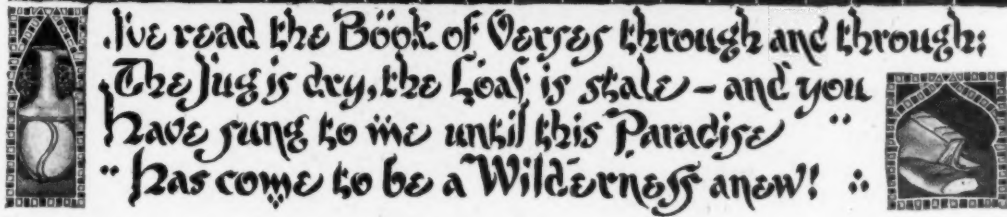 I've read the Book of Verses through and through:
The Jug is dry, the Loaf is stale – and you
have sung to me until this Paradise
has come to be a Wilderness anew!